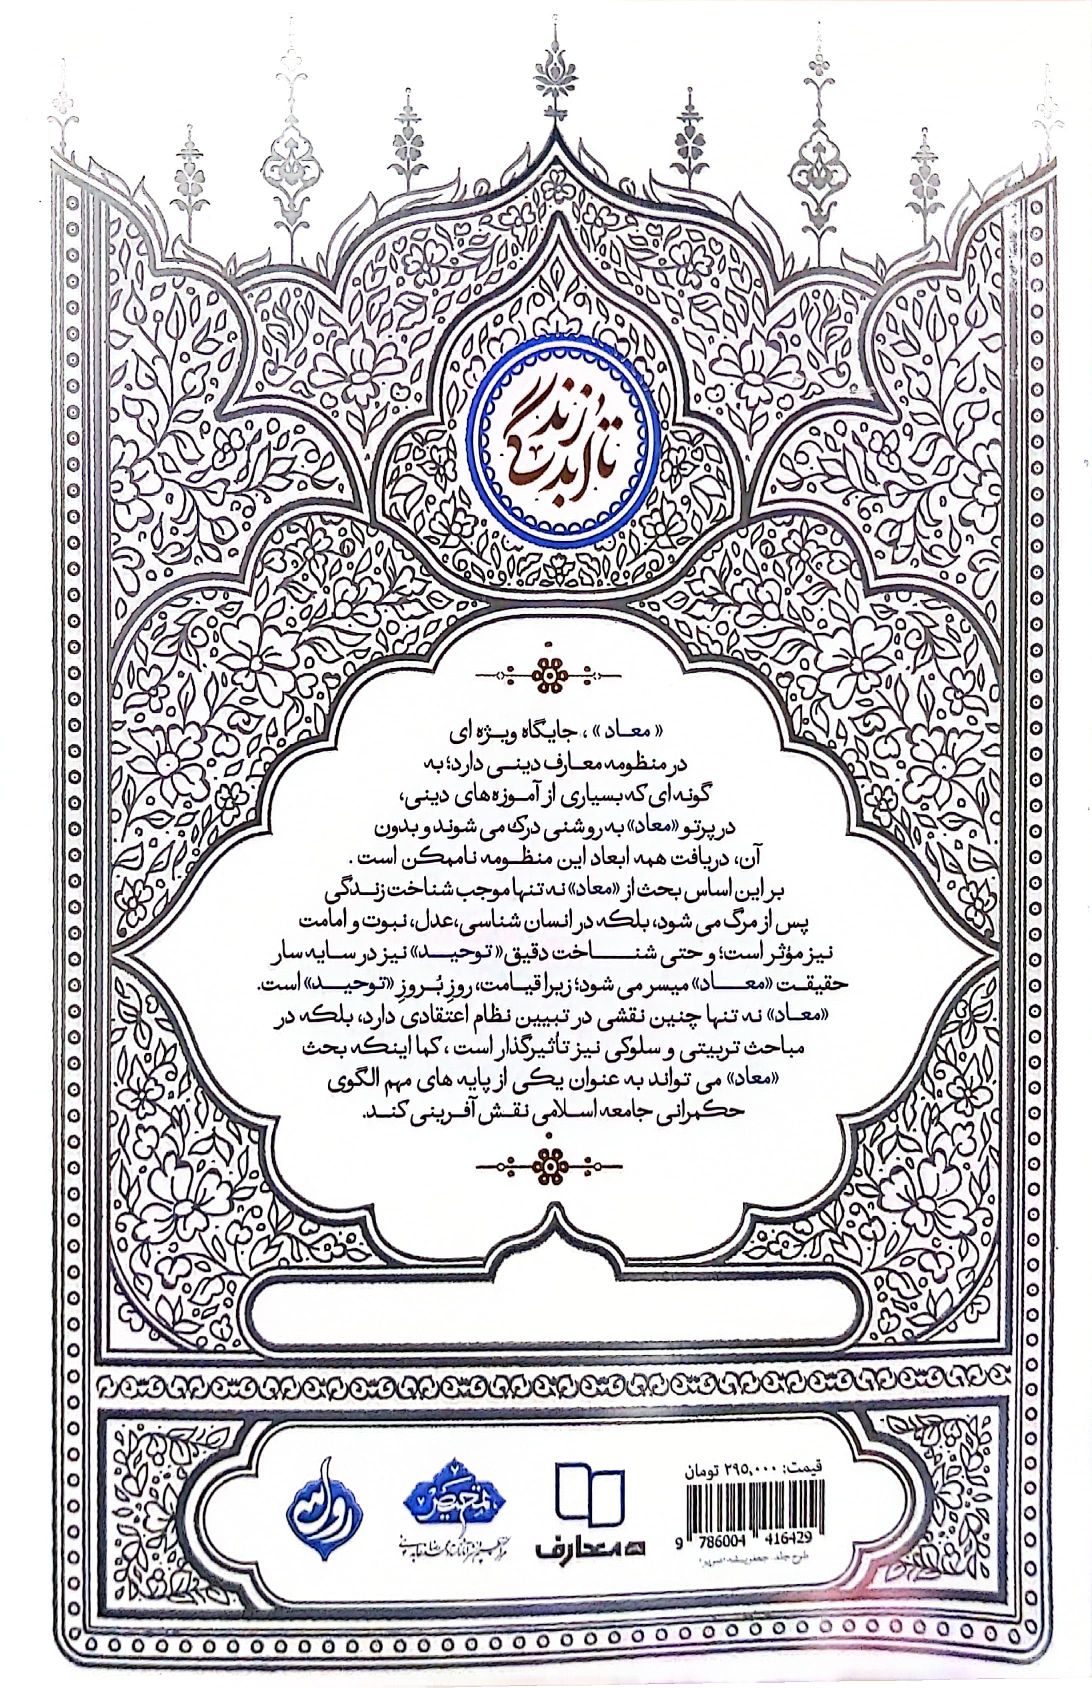 تا ابد زندگی
« معاد » ، جایگاه ویژه ای
در منظومه معارف دینی دارد؛ به
گونه ای که بسیاری از آموزه‌های دینی،
در پرتو «معاد» به روشنی درک می شوند و بدون
آن، دریافت همه ابعاد این منظومه ناممکن است .
بر این اساس بحث از «معاد» نه تنها موجب شناخت زندگی
پس از مرگ می شود، بلکه در انسان شناسی،عدل، نبوت و امامت
نیز مؤثر است؛ و حتی شناخت دقیق« توحید» نیز در سایه سار
حقیقت «معاد» میسر می شود؛ زیرا قیامت، روزِ بُروزِ «توحید» است.
«معاد» نه تنها چنین نقشی در تبیین نظام اعتقادی دارد، بلکه در
مباحث تربیتی و سلوکی نیز تأثیرگذار است ، کما اینکه بحث
«معاد» می تواند به عنوان یکی از پایه های مهم الگوی
حکمرانی جامعه اسلامی نقش آفرینی کند.
قیمت: ۲۹۵,۰۰۰ تومان
9 786004 416429
معارف